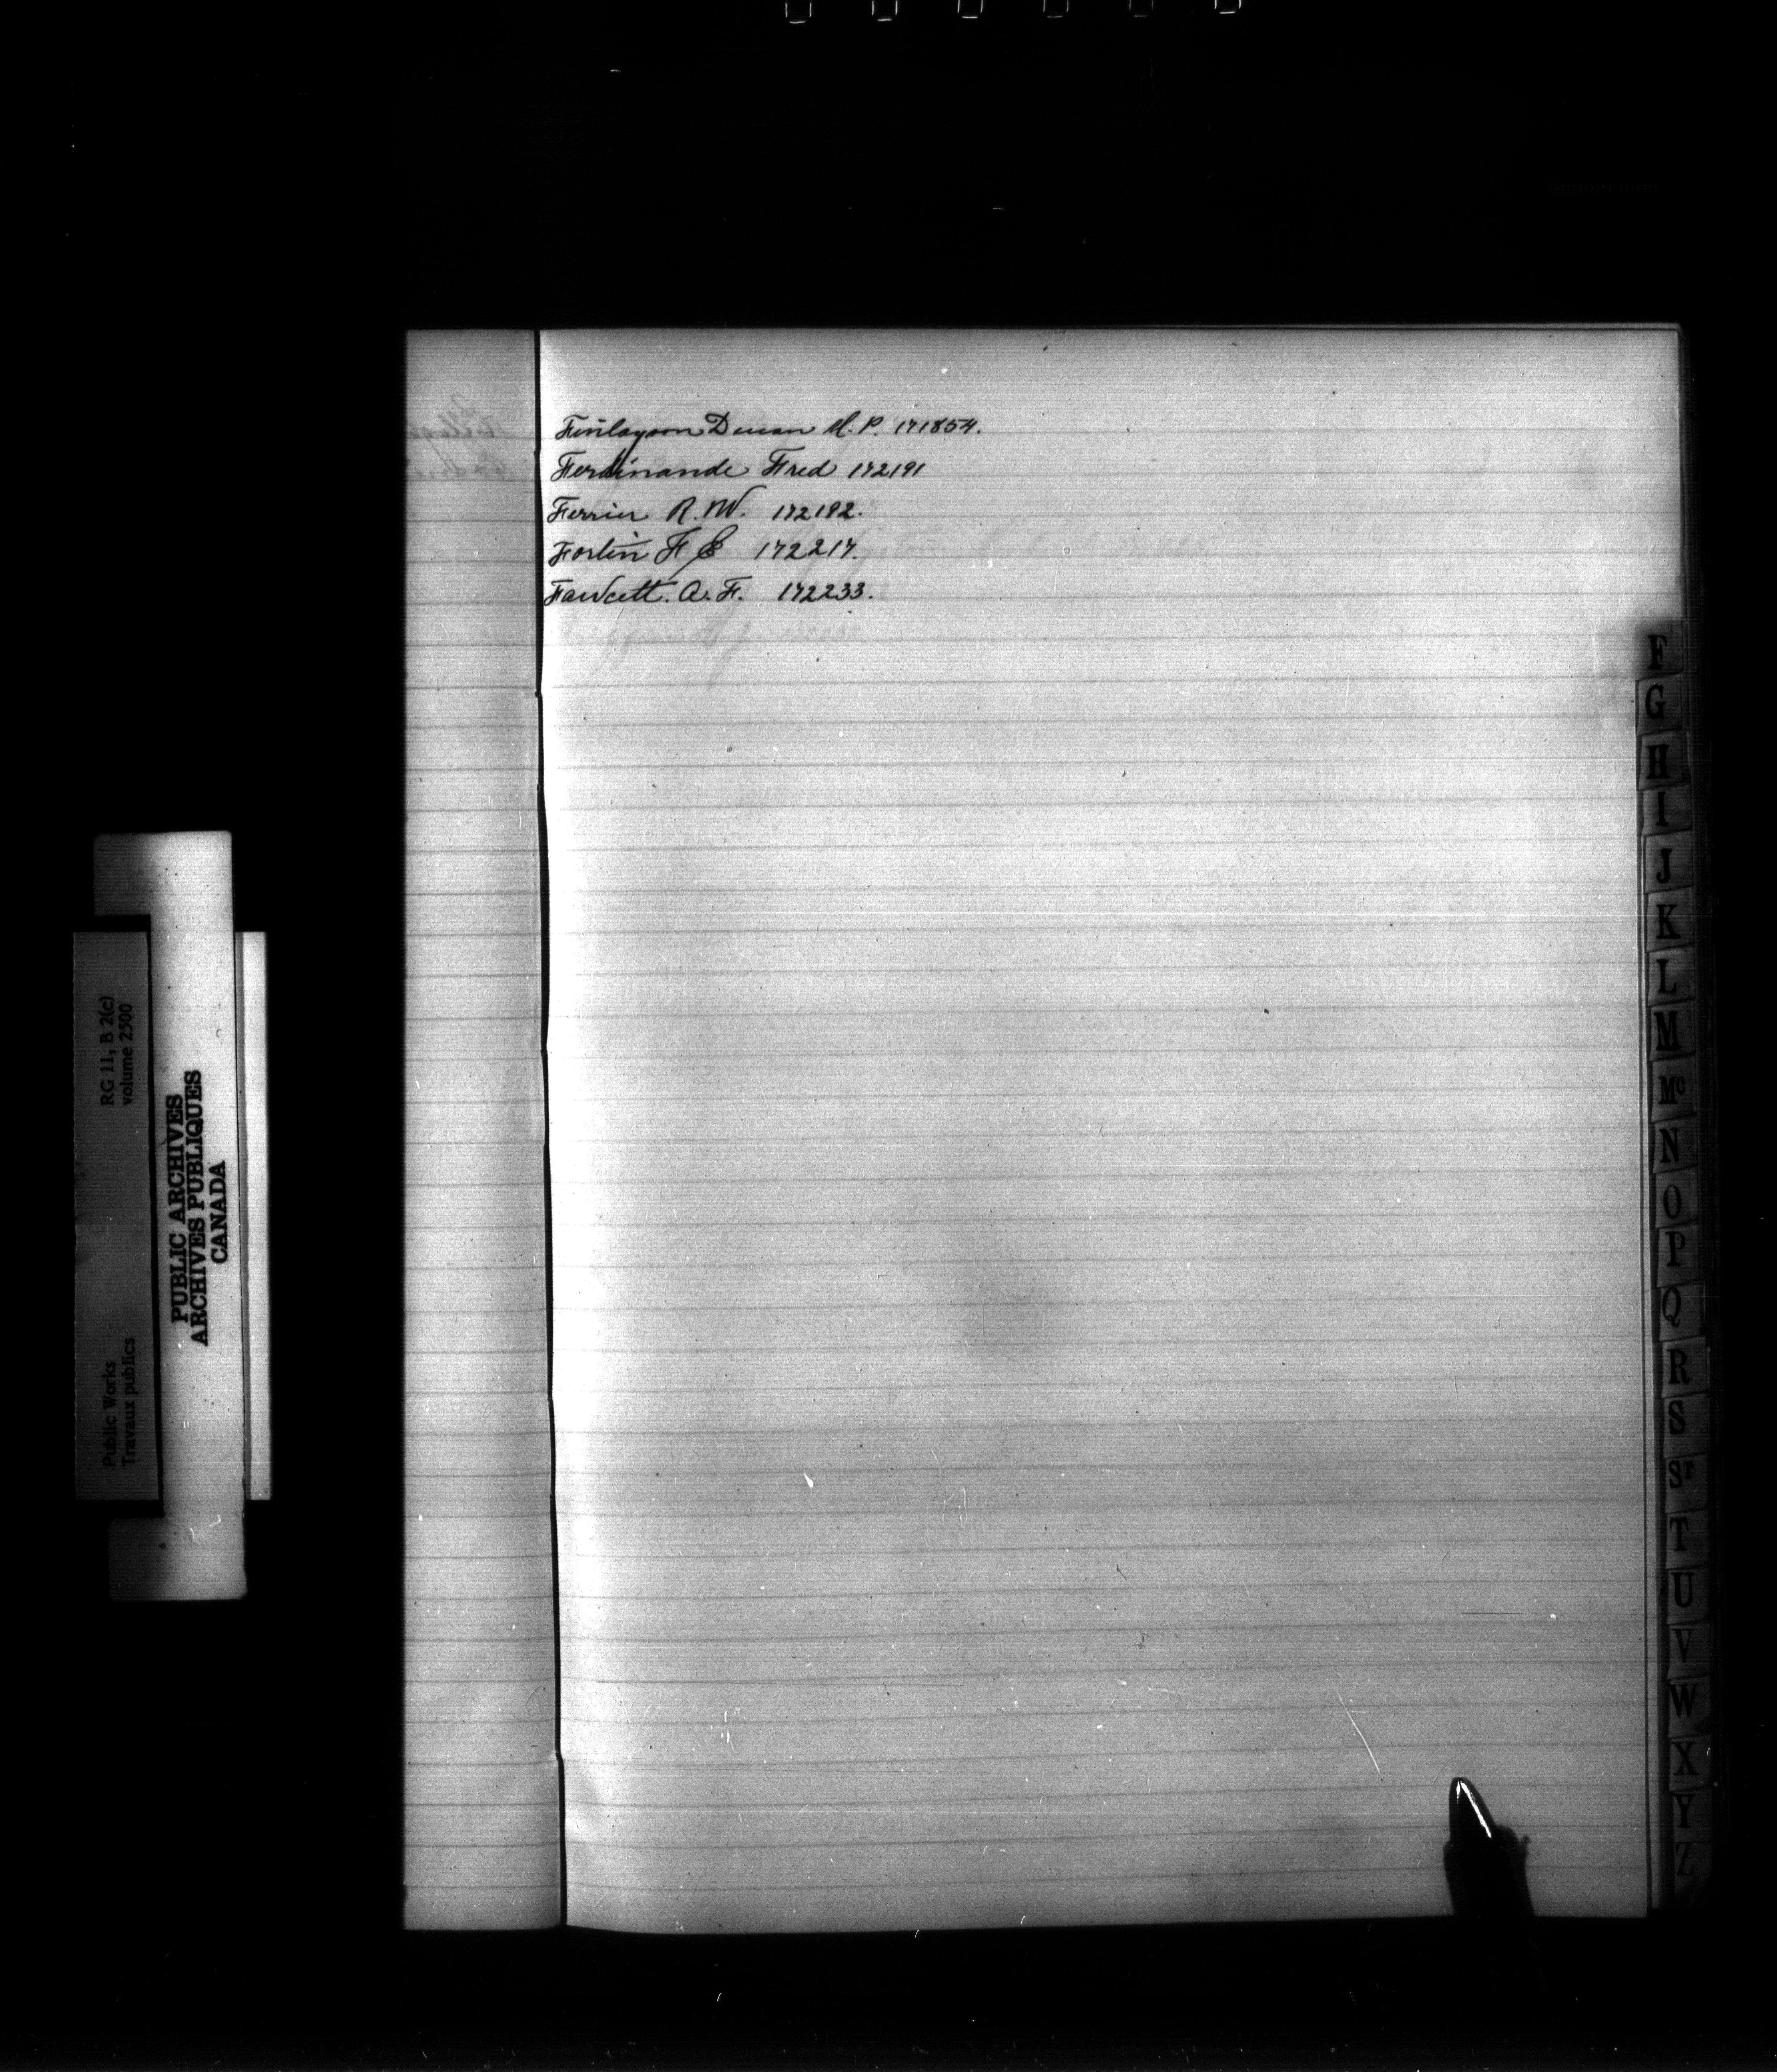 Finlayson Duncan M.P. 171854.
Ferdinande Fred 172191
Ferrier R.W. 172192.
Fortin F E 172217.
Fawcett. A. F. 172233.
F
G
H
I
J
K
L
M
Mc
N
O
P
Q
R
S
ST
T
U
V
W
X
Y
Z
RG 11, B 2(c)
volume 2500
Public Works
Travaux publics
PUBLIC ARCHIVES
ARCHIVES PUBLIQUES
CANADA